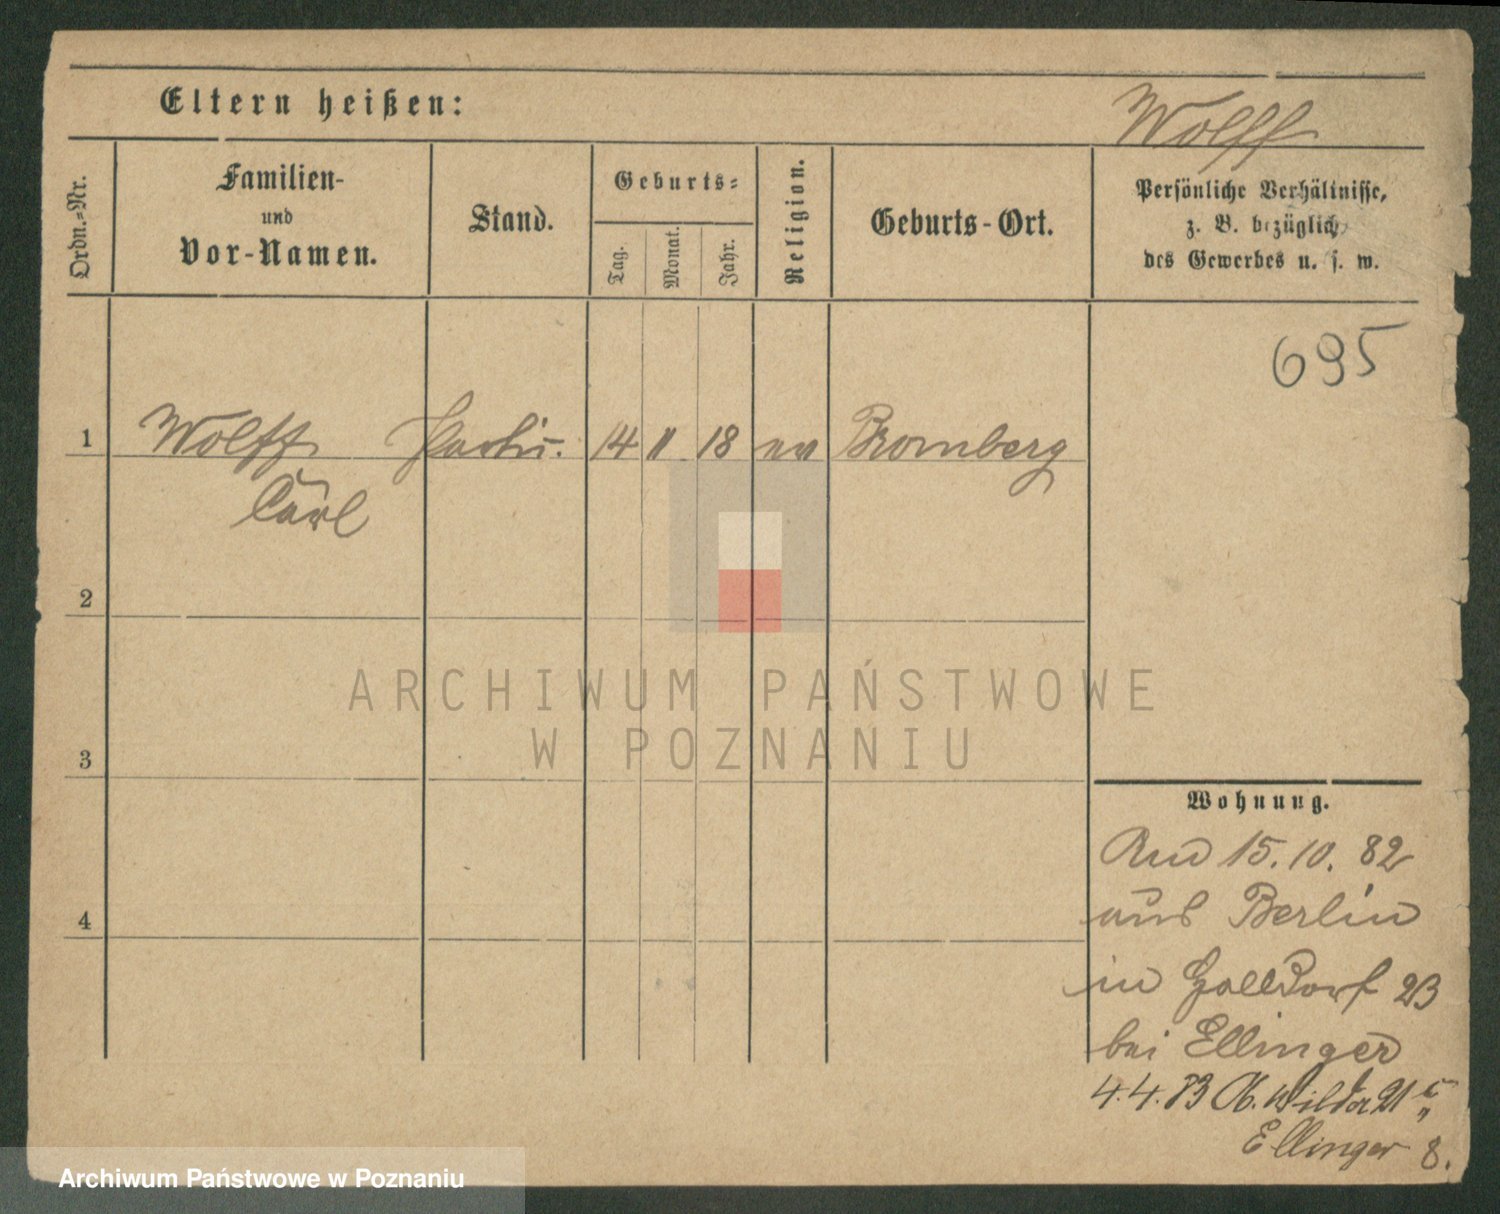 Eltern heißen:
Wolff
Ordn.=Nr.
Familien-
und
Vor-Namen.
Stand.
Geburts=
Tag.
Monat.
Jahr.
Religion.
Geburts-Ort.
Persönliche Verhältnisse,
z. B. bezüglich
des Gewerbes u. s. w.
695
1 Wolff 14 11 18 ev Bromberg
Carl
2
ARCHIWUM PAŃSTWOWE
W POZNANIU
3
Wohnung.
15. 10. 82
aus Berlin
4
in 23
bei Ellinger
4. 4. 83 O. Wilda 21
Ellinger 8.
Archiwum Państwowe w Poznaniu